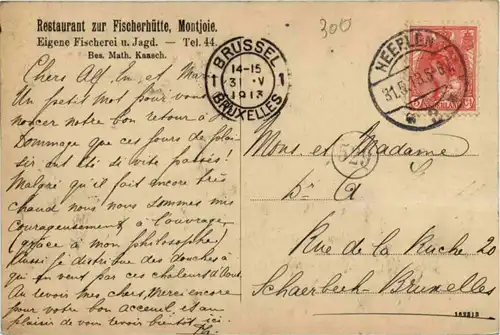 Restaurant zur Fischerhütte, Montjoie.
Eigene Fischerei u. Jagd. — Tel. 44.
Bes. Math. Kaasch.
300
BRUSSEL
14-15
31 V
1913
BRUXELLES
HEERLEN
31.5.13.
Chers Alf. et
Un petit mot pour vous
noncer notre bon retour à
Dommage que ces jours de plai-
sir ont si vite passés!
Malgré qu'il fait encore très
chaud nous nous sommes mis
courageusement à l'ouvrage
(grâce à mon philosophe)
Aussi je distribue des douches à
qui en veut par ces chaleurs
Au revoir mes chers, Merci encore
pour votre bon acceuil et au
plaisir de vous revoir bientôt ici.
Mons. et Madame
529
Rue de la Ruche 20
Schaerbeek-Bruxelles